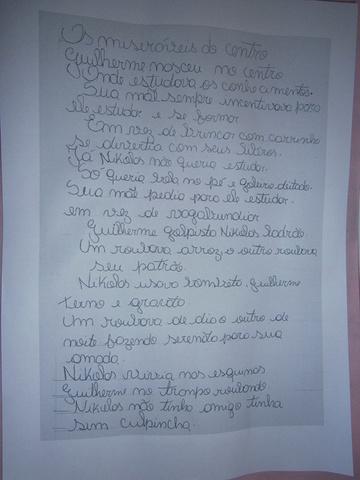 Os miseráveis do centro
Guilherme nasceu no centro
Onde estudava os conhecimentos.
Sua mãe sempre incentivava para
ele estudar e se formar
Em vez de brincar com carrinho
se divertia com seus livros.
Já Nikolas não queria estudar.
Só queria bola no pé e
Sua mãe pedia para ele estudar.
em vez de vagabundiar
Guilherme golpista Nikolas ladrão.
Um roubava arroz, o outro roubava
seu patrão.
Nikolas usava bombeta, guilherme
terno e gravata
Um roubava de dia o outro de
noite fazendo serenata para sua
amada.
Nikolas nas esquinas
Guilherme no trampo roubando
Nikolas não tinha amigo tinha
sim culpincha.